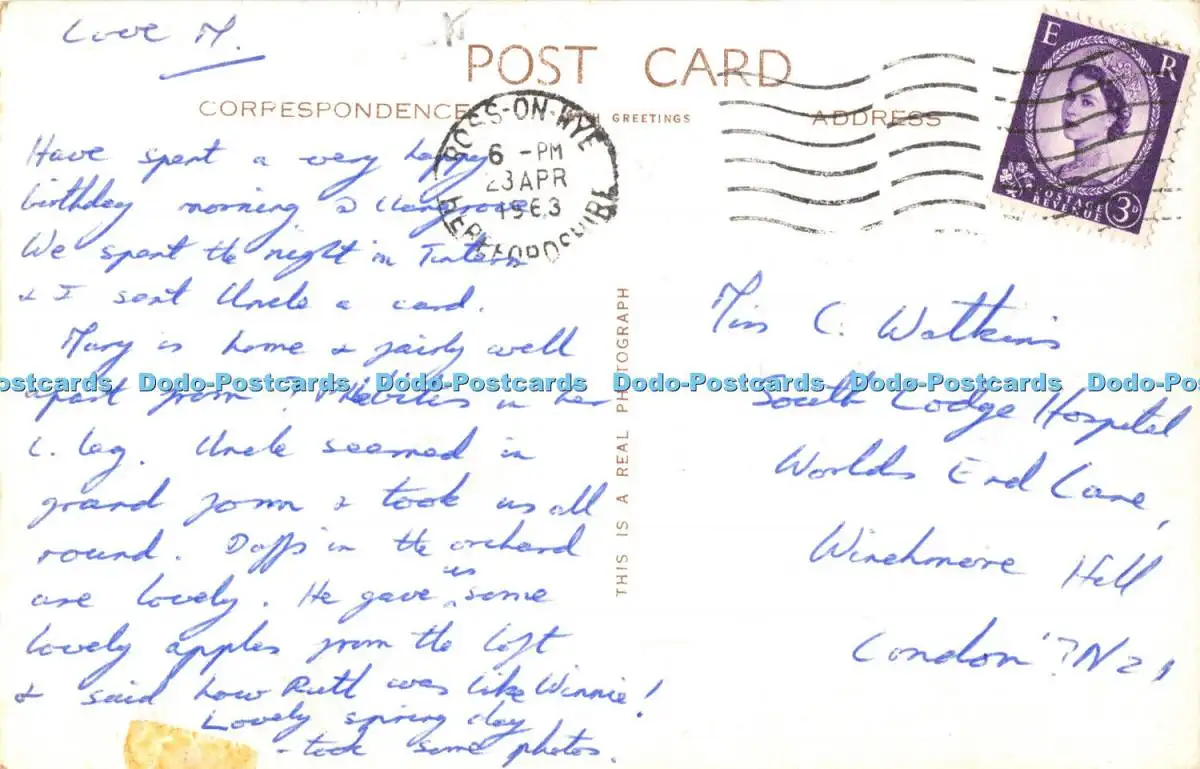 Love M.
POST CARD
CORRESPONDENCE WITH GREETINGS ADDRESS
ROSS-ON-WYE
6 - PM
23 APR
1963
HEREFORDSHIRE
E R
POSTAGE
REVENUE 3D
Have spent a very happy
birthday morning @ Llangrove
We spent the night in Tintern
& I sent Uncle a card.
Mary is home & fairly well
apart from ? Phlebitis in her
L. leg. Uncle seemed in
grand form & took us all
round. Daffs in the orchard
are lovely. He gave us some
lovely apples from the loft
& said how Ruth was like Winnie!
Lovely spring day
- took some photos.
THIS IS A REAL PHOTOGRAPH
Miss C. Watkins
South Lodge Hospital
Worlds End Lane,
Winchmore Hill
London ? N21
Dodo-Postcards Dodo-Postcards Dodo-Postcards Dodo-Postcards Dodo-Postcards Dodo-Postcards